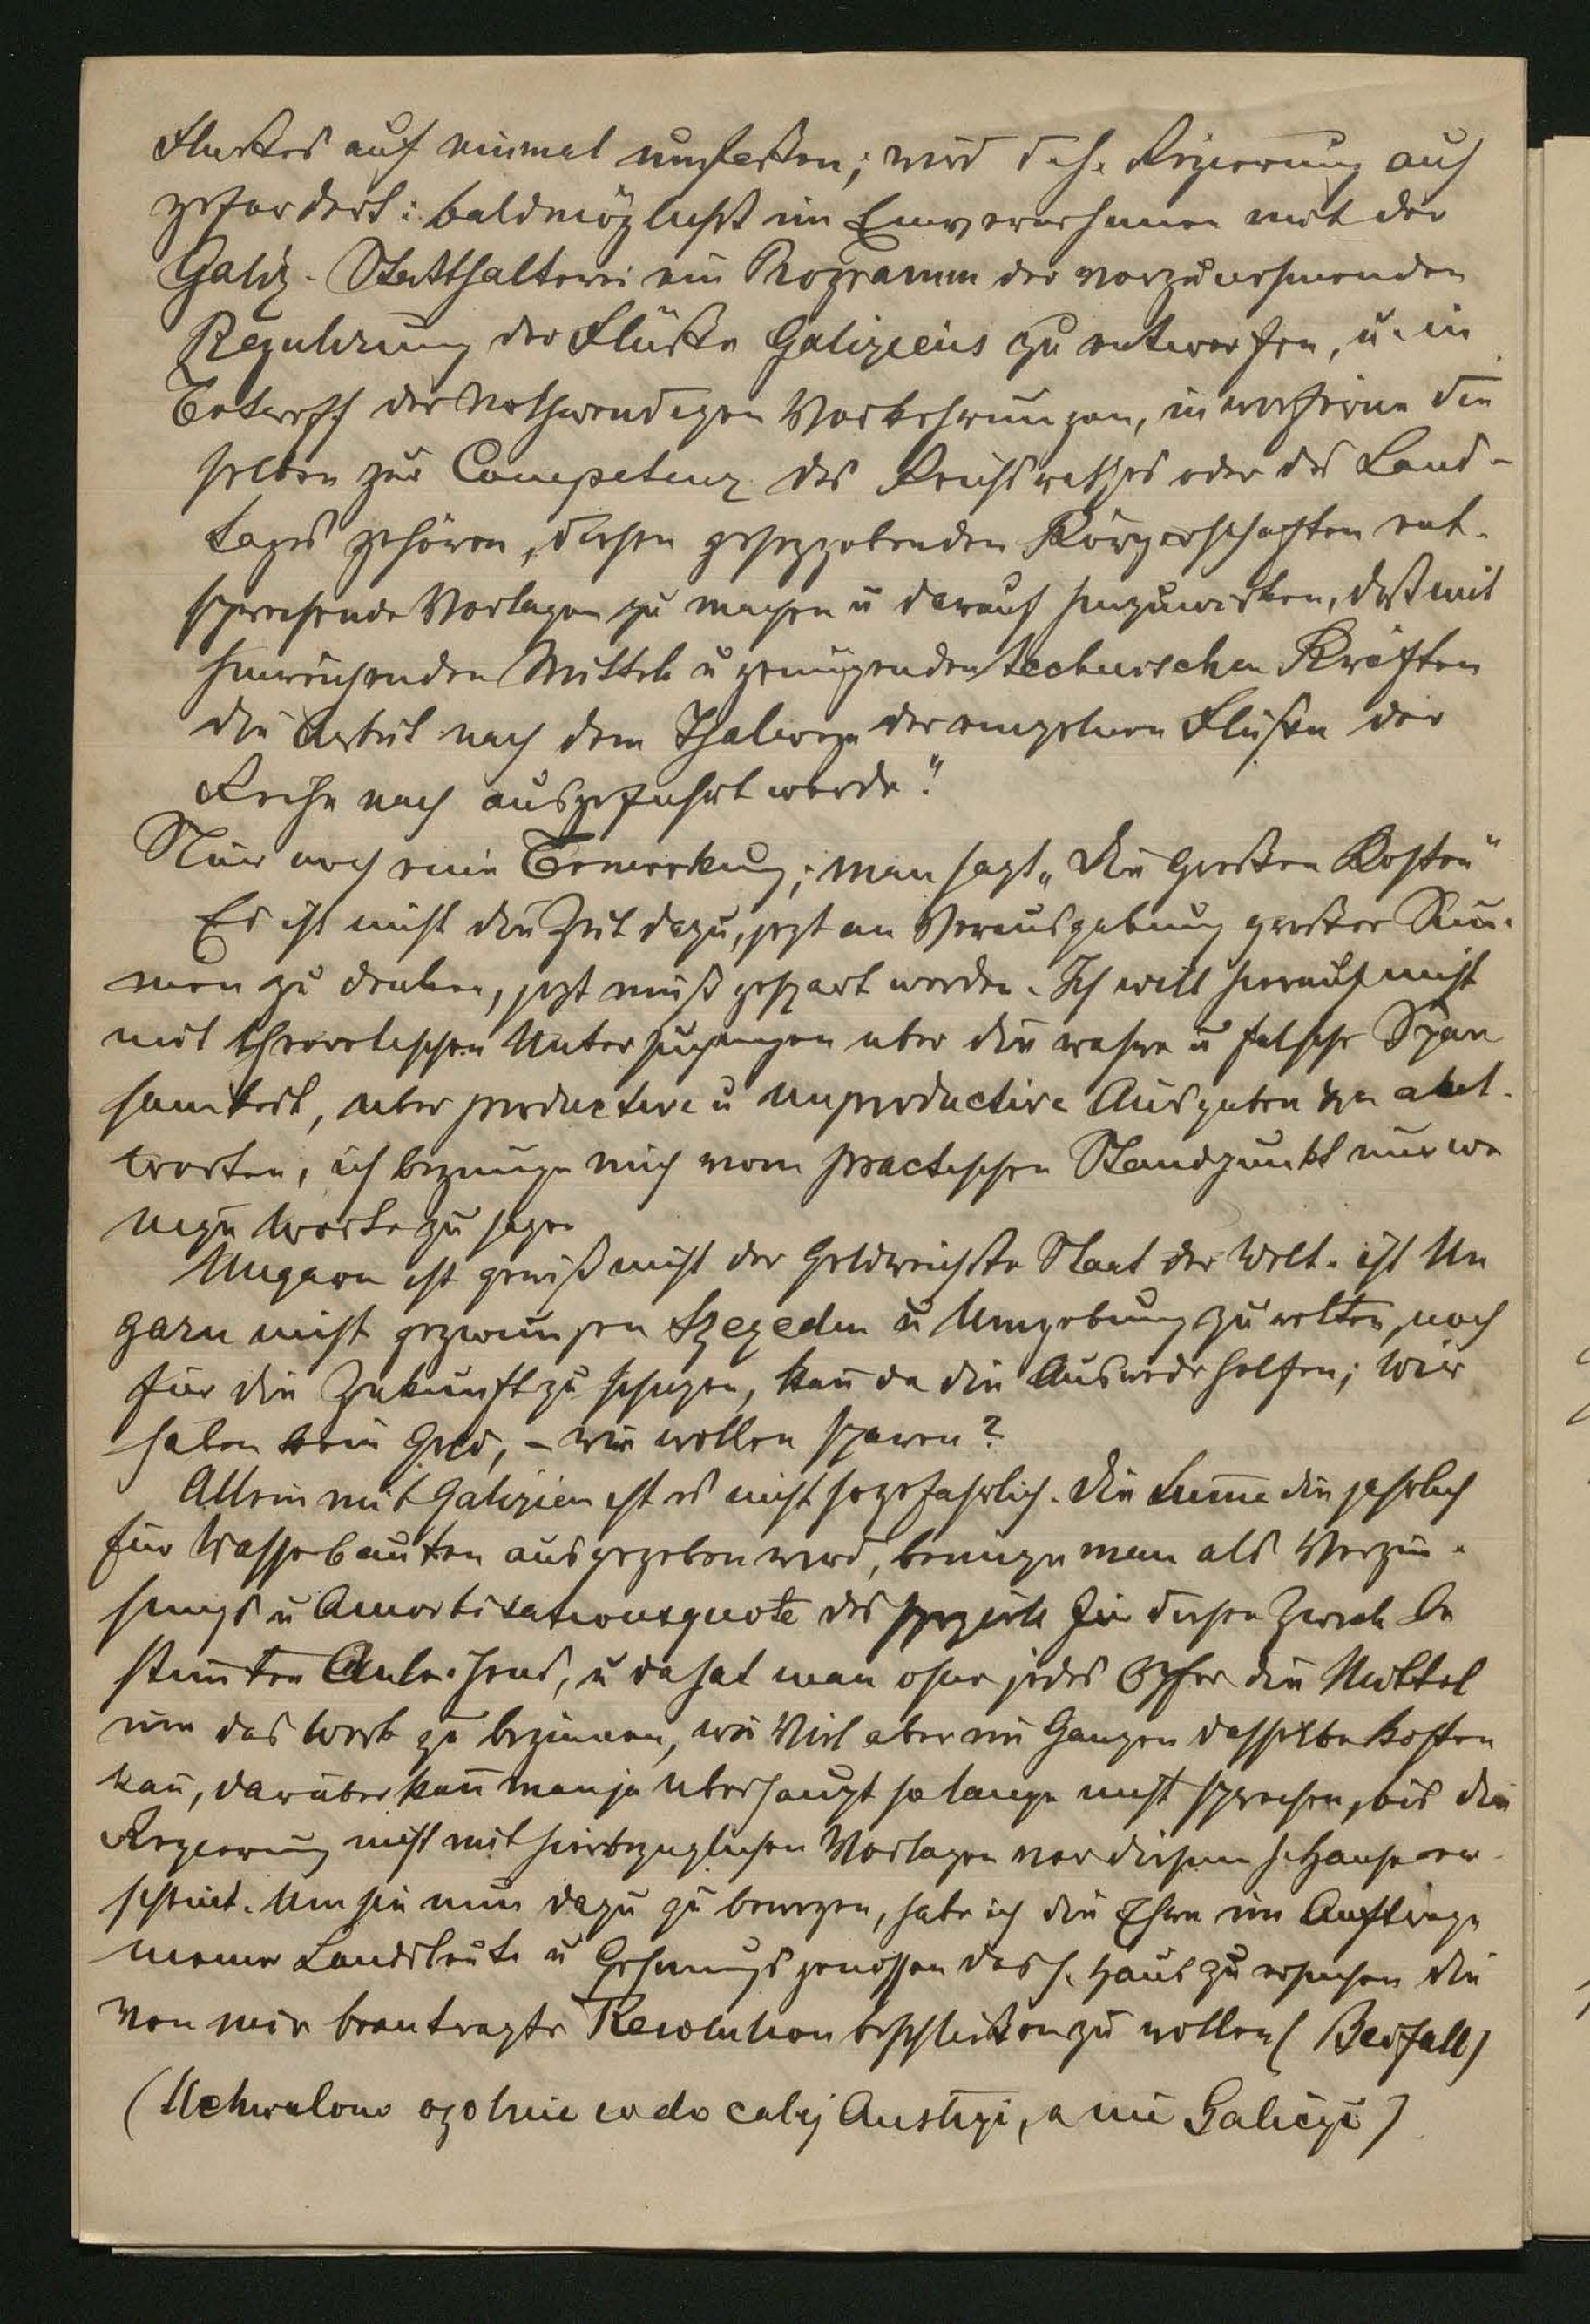 Flußes auf einmal umfaßen; wird d. h. Regierung auf
gefordert: baldmöglichst im Einvernehmen mit der
Galiz. Statthalterei ein Programm der vorzunehmenden
Regulirung der Flüße Galiziens zu entwerfen, u. in
Betreff der nothwendigen Vorkehrungen, in wiefern die
selben zur Competenz des Reichsrathes oder des Land-
tages gehören, diesen gesezgebenden Körperschaften ent-
sprechende Vorlagen zu machen u darauf hinzuwirken, daß mit
hinreichenden Mitteln u genügenden technischen Kräften
die Arbeit nach dem Thalwege der einzelnen Flüße der
Reihe nach ausgeführt werde."
Nur noch eine Bemerkung; man sagt „die großen Kosten"
Es ist nicht die Zeit dazu, jezt an Verausgabung großer Sum-
men zu denken, jezt muß gespart werden. Ich will hierauf nicht
mit theoretischen Untersuchungen uber die wahre u falsche Spar
samkeit, uber productive u unproductive Ausgaben ant-
worten, ich begnüge mich vom practischen Standpunkt nur we
nige Worte zu sagen
Ungarn ist gewiß nicht der Geldreichste Staat der Welt. ist Un
garn nicht gezwungen Szegedin u Umgebung zu retten, noch
für die Zukunft zu schuzen, kañ da die Ausrede helfen; wir
haben kein Geld, – wir wollen sparen?
Allein mit Galizien ist es nicht so gefahrlich. Die Sume die jahrlich
für Wasserbauten ausgegeben wird, benuze man als Verzin-
sungs u Amortisationsquote des speziell für diesen Zweck be
stimten Anleihens, u da hat man ohne jedes Opfer die Mittel
um das Werk zu beginnen, wie Viel aber im Ganzen dasselbe kosten
kañ, daruber kañ man ja uberhaupt so lange nicht sprechen, bis die
Regierung nicht mit hierbezuglichen Vorlagen vor diesem h. Hause er-
scheint. Um sie nun dazu zu bewegen, habe ich die Ehre im Auftrage
meiner Landsleute u Gesinungsgenossen das h. Haus zu ersuchen die
von mir beantragte Resolution beschließen zu wollen (Beifall)
(Uchwalono ogolnie co do calej Austryi, a nie Galicyi)